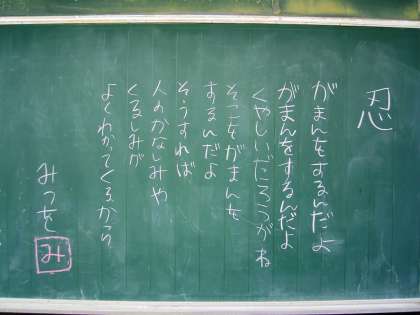 忍
がまんをするんだよ
がまんをするんだよ
くやしいだろうがね
そこをがまんを
するんだよ
そうすれば
人のかなしみや
くるしみが
よくわかってくるから
みつを
み